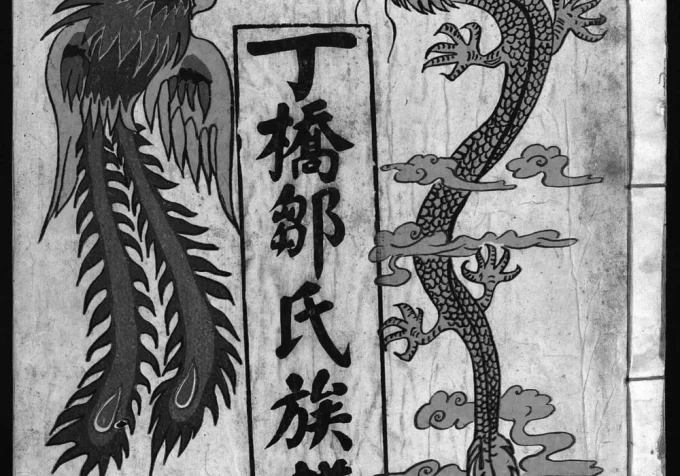 丁橋鄒氏族